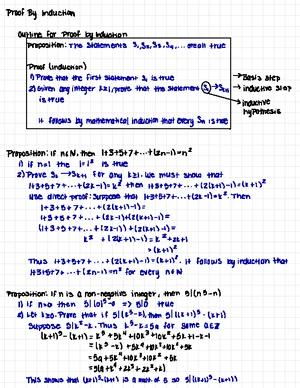 Proof By Induction
Outline for Proof by Induction
Proposition: The statements S₁, S₂, S₃, S₄, ... are all true
Proof (induction)
1) Prove that the first statement S₁ is true
2) Given any integer k≥1, prove that the statement Sₖ → Sₖ₊₁
is true
It follows by mathematical induction that every Sₙ is true
→ Basis step
→ inductive step
inductive
hypothesis
Proposition: if n∈N, then 1+3+5+7+...+(2n-1)=n²
1) if n=1 the 1=1² is true
2) Prove Sₖ → Sₖ₊₁ for any k≥1. we must show that
1+3+5+7+...+(2k-1)=k² then 1+3+5+7+...+(2(k+1)-1)=(k+1)²
Use direct proof: Suppose that 1+3+5+7+...+(2k-1)=k². Then
1+3+5+7+...+(2(k+1)-1)=
1+3+5+7+...+(2k-1)+(2(k+1)-1)=
(1+3+5+7+...+(2k-1))+(2(k+1)-1)=
k² + (2(k+1)-1)=k²+2k+1
=(k+1)²
Thus 1+3+5+7+...+(2(k+1)-1)=(k+1)². it follows by induction that
1+3+5+7+...+(2n-1)=n² for every n∈N
Proposition: if n is a non-negative integer, then 5|(n⁵-n)
1) if n=0 then 5|(0⁵-0 → 5|0 true
2) Let k≥0. Prove that if 5|(k⁵-k), then 5|((k+1)⁵-(k+1))
Suppose 5|k⁵-k. Thus k⁵-k=5a for some a∈Z
(k+1)⁵-(k+1)= k⁵+5k⁴+10k³+10k²+5k+1-k-1
=(k⁵-k)+5k⁴+10k³+10k²+5k
=5a+5k⁴+10k³+10k²+5k
=5(a+k⁴+2k³+2k²+k)
This shows that (k+1)⁵-(k+1) is a mult. of 5 so 5|((k+1)⁵-(k+1))